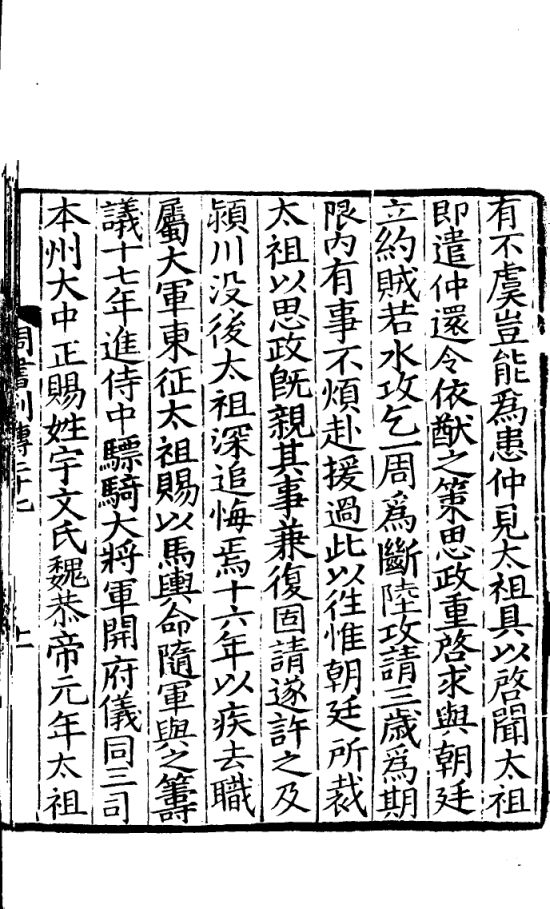 有不虞豈能為患仲見太祖具以啓聞太祖
即遣仲還令依猷之策思政重啓求與朝廷
立約賊若水攻乞一周為斷陸攻請三歲為期
限內有事不煩赴援過此以往惟朝廷所裁
太祖以思政旣親其事兼復固請遂許之及
潁川没後太祖深追悔焉十六年以疾去職
屬大軍東征太祖賜以馬輿命隨軍與之籌
議十七年進侍中驃騎大將軍開府儀同三司
本州大中正賜姓宇文氏魏恭帝元年太祖
周書列傳二十七